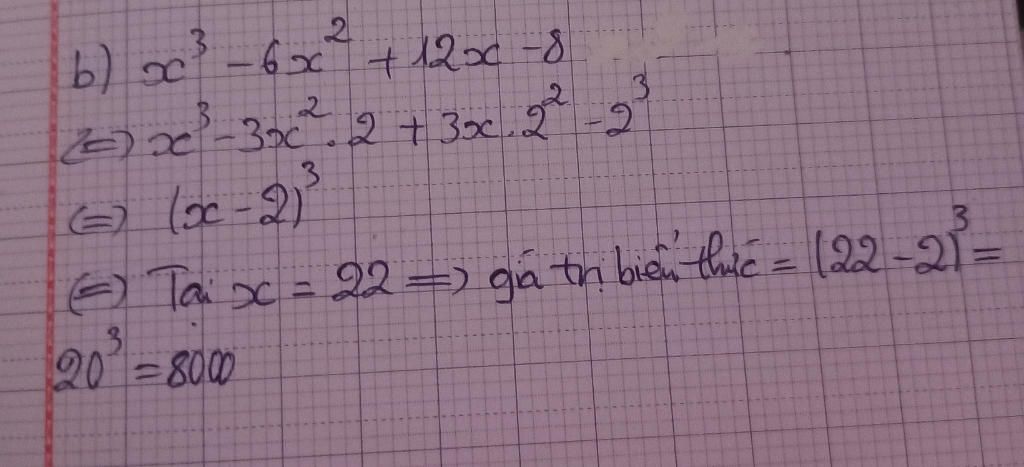 b) x³ - 6x² + 12x - 8
(=) x³ - 3x² . 2 + 3x . 2² - 2³
(=) (x - 2)³
(=) Tại x = 22 => giá trị biểu thức = (22 - 2)³ =
20³ = 8000